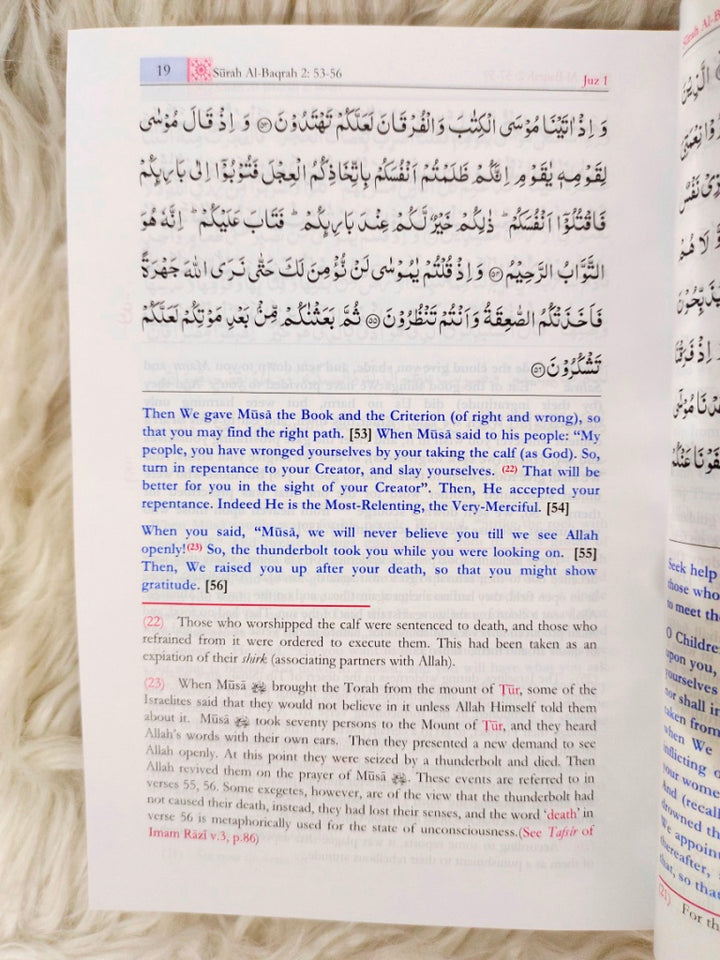 19
Sūrah Al-Baqrah 2: 53-56
Juz 1
وَ اِذْ اٰتَيْنَا مُوْسَى الْكِتٰبَ وَالْفُرْقَانَ لَعَلَّكُمْ تَهْتَدُوْنَ ۝۵۳ وَ اِذْ قَالَ مُوْسٰى
لِقَوْمِهٖ يٰقَوْمِ اِنَّكُمْ ظَلَمْتُمْ اَنْفُسَكُمْ بِاتِّخَاذِكُمُ الْعِجْلَ فَتُوْبُوْٓا اِلٰى بَارِىِٕكُمْ
فَاقْتُلُوْٓا اَنْفُسَكُمْ ؕ ذٰلِكُمْ خَيْرٌ لَّكُمْ عِنْدَ بَارِىِٕكُمْ ؕ فَتَابَ عَلَيْكُمْ ؕ اِنَّهٗ هُوَ
التَّوَّابُ الرَّحِيْمُ ۝۵۴ وَ اِذْ قُلْتُمْ يٰمُوْسٰى لَنْ نُّؤْمِنَ لَكَ حَتّٰى نَرَى اللّٰهَ جَهْرَةً
فَاَخَذَتْكُمُ الصّٰعِقَةُ وَ اَنْتُمْ تَنْظُرُوْنَ ۝۵۵ ثُمَّ بَعَثْنٰكُمْ مِّنْۢ بَعْدِ مَوْتِكُمْ لَعَلَّكُمْ
تَشْكُرُوْنَ ۝۵۶
Then We gave Mūsā the Book and the Criterion (of right and wrong), so
that you may find the right path. [53] When Mūsā said to his people: “My
people, you have wronged yourselves by your taking the calf (as God). So,
turn in repentance to your Creator, and slay yourselves. (22) That will be
better for you in the sight of your Creator”. Then, He accepted your
repentance. Indeed He is the Most-Relenting, the Very-Merciful. [54]
When you said, “Mūsā, we will never believe you till we see Allah
openly!(23) So, the thunderbolt took you while you were looking on. [55]
Then, We raised you up after your death, so that you might show
gratitude. [56]
(22) Those who worshipped the calf were sentenced to death, and those who
refrained from it were ordered to execute them. This had been taken as an
expiation of their shirk (associating partners with Allah).
(23) When Mūsā brought the Torah from the mount of Tūr, some of the
Israelites said that they would not believe in it unless Allah Himself told them
about it. Mūsā took seventy persons to the Mount of Tūr, and they heard
Allah’s words with their own ears. Then they presented a new demand to see
Allah openly. At this point they were seized by a thunderbolt and died. Then
Allah revived them on the prayer of Mūsā. These events are referred to in
verses 55, 56. Some exegetes, however, are of the view that the thunderbolt had
not caused their death, instead, they had lost their senses, and the word ‘death’ in
verse 56 is metaphorically used for the state of unconsciousness.(See Tafsir of
Imam Rāzī v.3, p.86)
Seek help
those who
to meet the
O Childre
upon you,
yourselves
nor shall in
taken from
when We
inflicting o
your wome
And (recal
drowned th
We appoin
thereafter,
that, so that
(21) For th